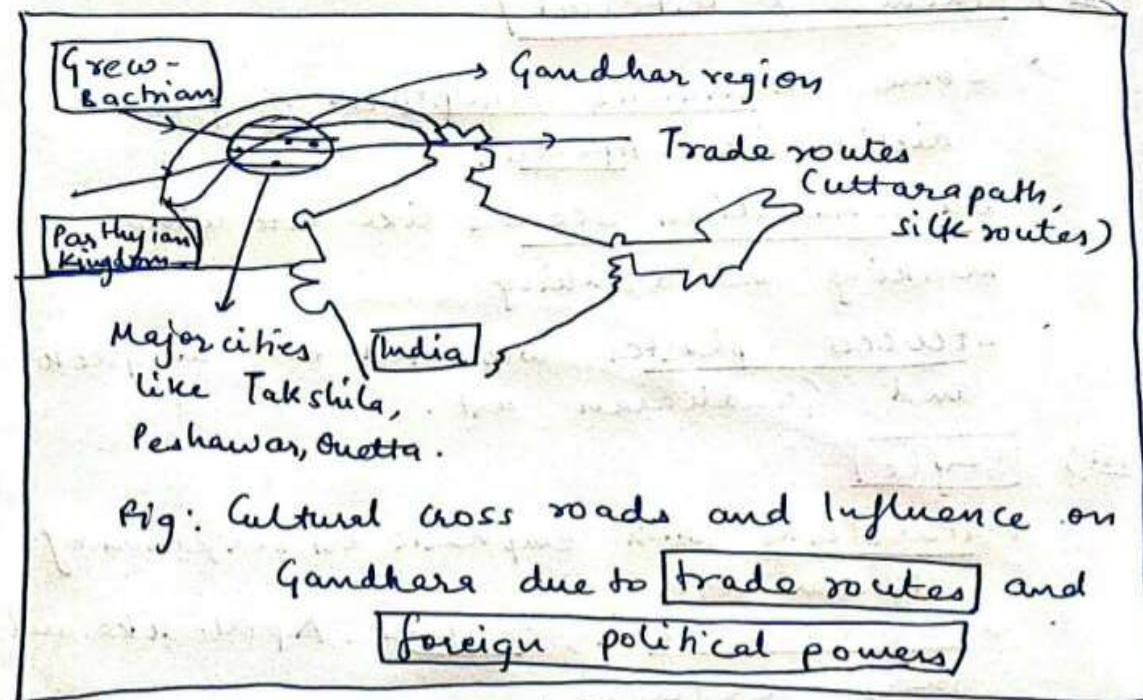 Grew-
Bactrian
Gandhar region
Trade routes
(uttarapath,
silk routes)
Parthyian
Kingdom
Major cities
like Takshila,
Peshawar, Quetta.
India
Fig: Cultural cross roads and Influence on
Gandhara due to trade routes and
foreign political powers